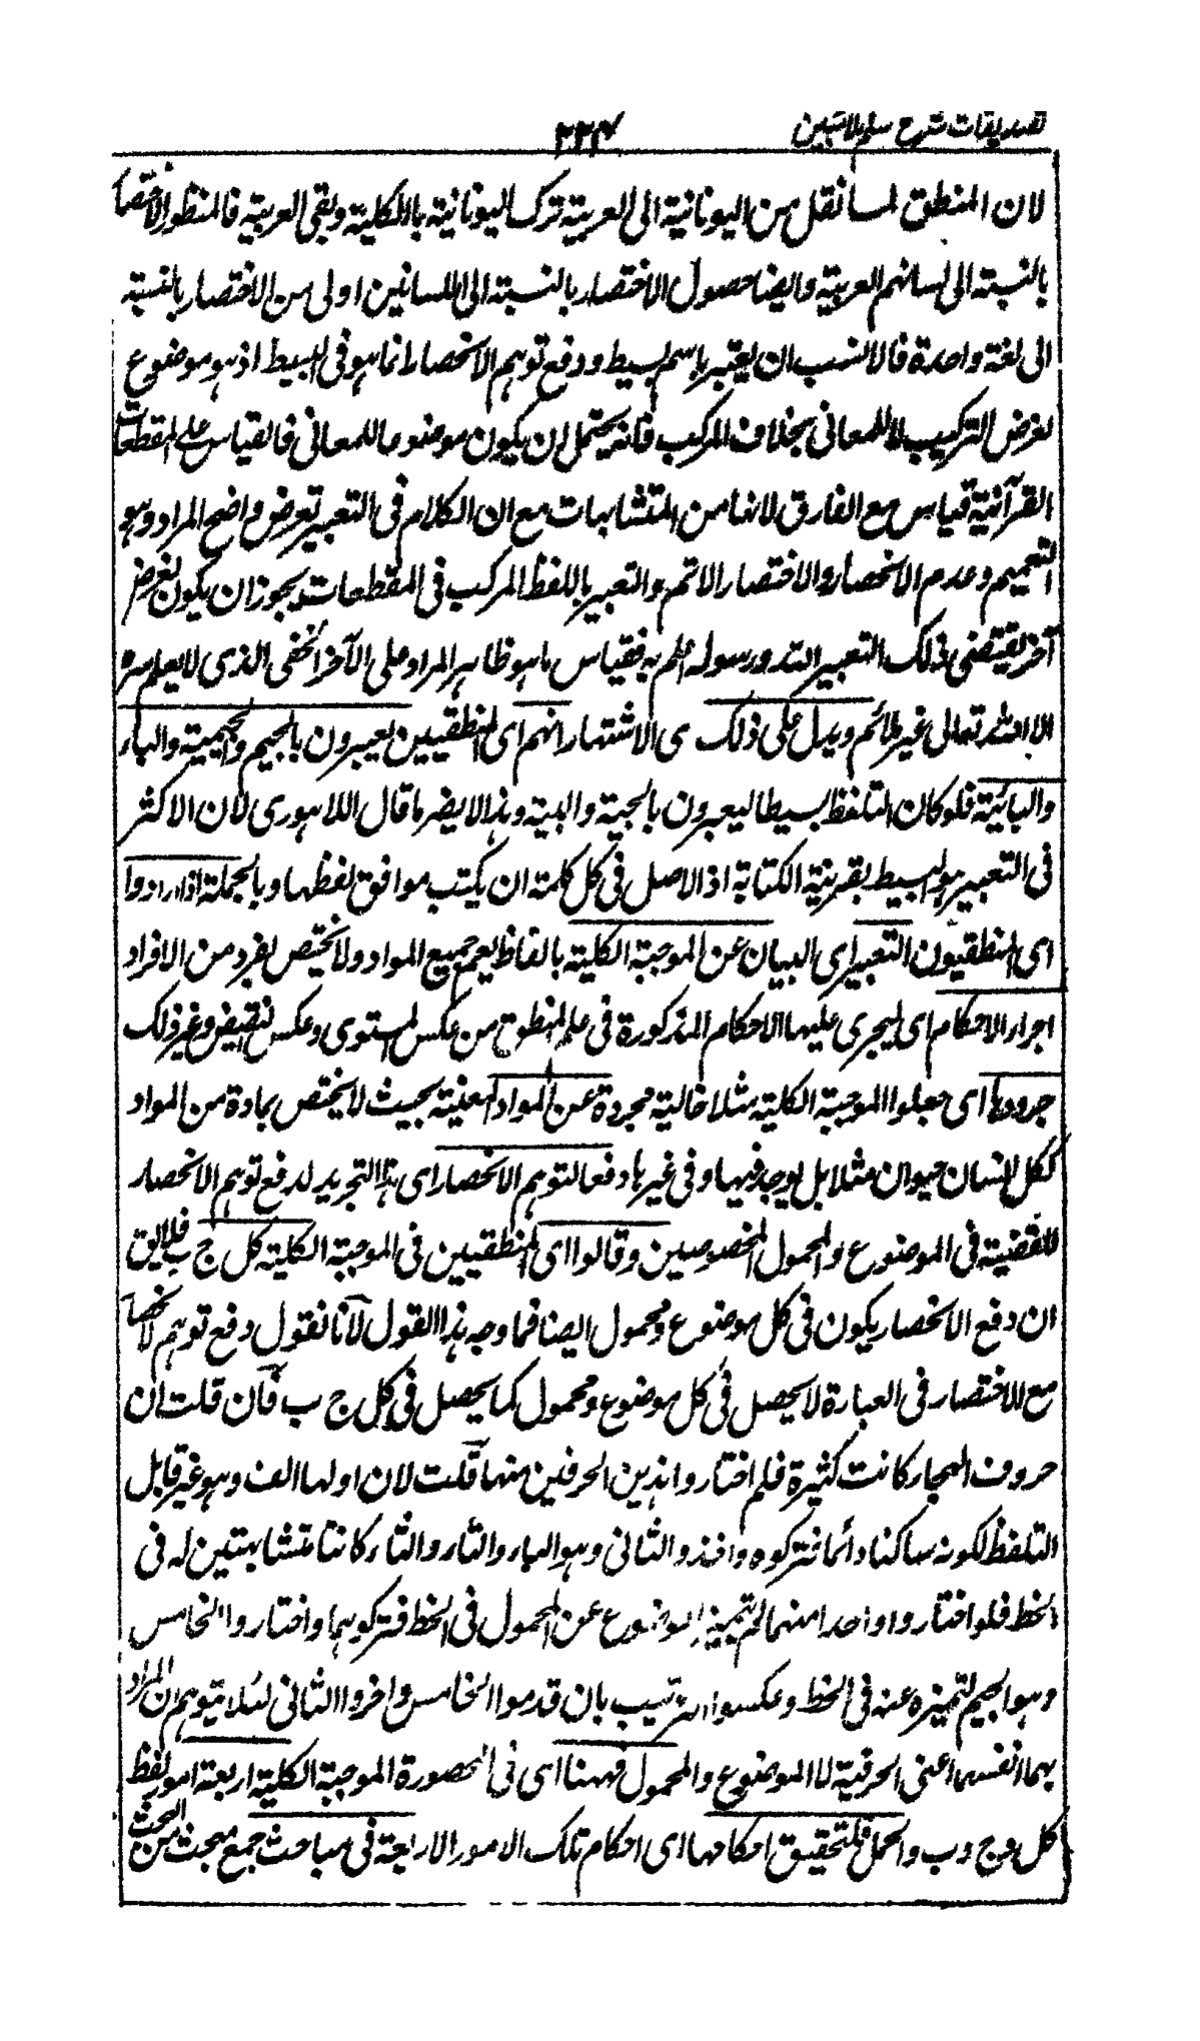 تصديقات شرح سلم ملا مبين ٢٣٤
لان المنطق لما نقل من اليونانية الى العربية ترك اليونانية بالكلية وبقى العربية فالمنظور الاختصار
بالنسبة الى لسانهم العربية وايضا حصول الاختصار بالنسبة الى اللسانين اولى من الاختصار بالنسبة
الى لغة واحدة فالانسب ان يعتبر باسم بسيط ودفع توهم الانحصار انما هو فى البسيط اذ هو موضوع
لغرض التركيب لا للمعانى بخلاف المركب فانه يحتمل ان يكون موضوعا للمعانى فالقياس على المقطعات
القرآنية قياس مع الفارق لانها من المتشابهات مع ان الكلام فى التعبير لغرض واضح المراد وهو
التعميم وعدم الانحصار والاختصار الاتم والتعبير باللفظ المركب فى المقطعات يجوز ان يكون لغرض
آخر يقتضى ذلك التعبير الله ورسوله اعلم به فقياس ما هو ظاهر المراد على الآخر الخفى الذى لا يعلم سره
الا الله تعالى غير ملائم ويدل على ذلك اى الاشتهار انهم اى المنطقيين يعبرون بالجيم والجيمية والباء
والبائية فلو كان التلفظ بسيطا ليعبرون بالجية والبية وهذا لا يضر ما قال اللاهورى لان الاكثر
فى التعبير هو البسيط بقرينة الكتابة اذ الاصل فى كل كلمة ان يكتب موافق لفظها وبالجملة اذا ارادوا
اى المنطقيون التعبير اى البيان عن الموجبة الكلية بالفاظ يعم جميع المواد ولا يختص بفرد من الافراد
اجراء الاحكام اى ليجرى عليها الاحكام المذكورة فى علم المنطق من عكس المستوى وعكس النقيض وغير ذلك
جردوها اى جعلوا الموجبة الكلية مثلا خالية مجردة عن المواد المعينة بحيث لا يختص بمادة من المواد
ككل انسان حيوان مثلا بل يوجد فيها وفى غيرها دفعا لتوهم الانحصار اى هذا التجريد لدفع توهم الانحصار
للقضية فى الموضوع والمحمول المخصوصين وقالوا اى المنطقيين فى الموجبة الكلية كل ج ب فلا يق
ان دفع الانحصار يكون فى كل موضوع ومحمول ايضا فما وجه هذا القول لانا نقول دفع توهم الانحصار
مع الاختصار فى العبارة لا يحصل فى كل موضوع ومحمول كما يحصل فى كل ج ب فان قلت ان
حروف الهجاء كانت كثيرة فلم اختاروا هذين الحرفين منها قلت لان اولها الف وهو غير قابل
التلفظ لكونه ساكنا دائما فتركوه واخذوا الثانى وهو الباء والتاء والثاء كانتا متشابهتين له فى
الخط فلو اختاروا واحدا منهما لم يتميز الموضوع عن المحمول فى الخط فتركوهما واختاروا الخامس
وهو الجيم لتميزه عنه فى الخط وعكسوا الترتيب بان قدموا الخامس واخروا الثانى لئلا يتوهم ان المراد
بهما انفسهما اعنى الحرفية لا الموضوع والمحمول فههنا اى فى المحصورة الموجبة الكلية اربعة امور لفظ
كل وج وب والحمل فلتحقيق احكامها اى احكام تلك الامور الاربعة فى مباحث جمع مبحث من البحث